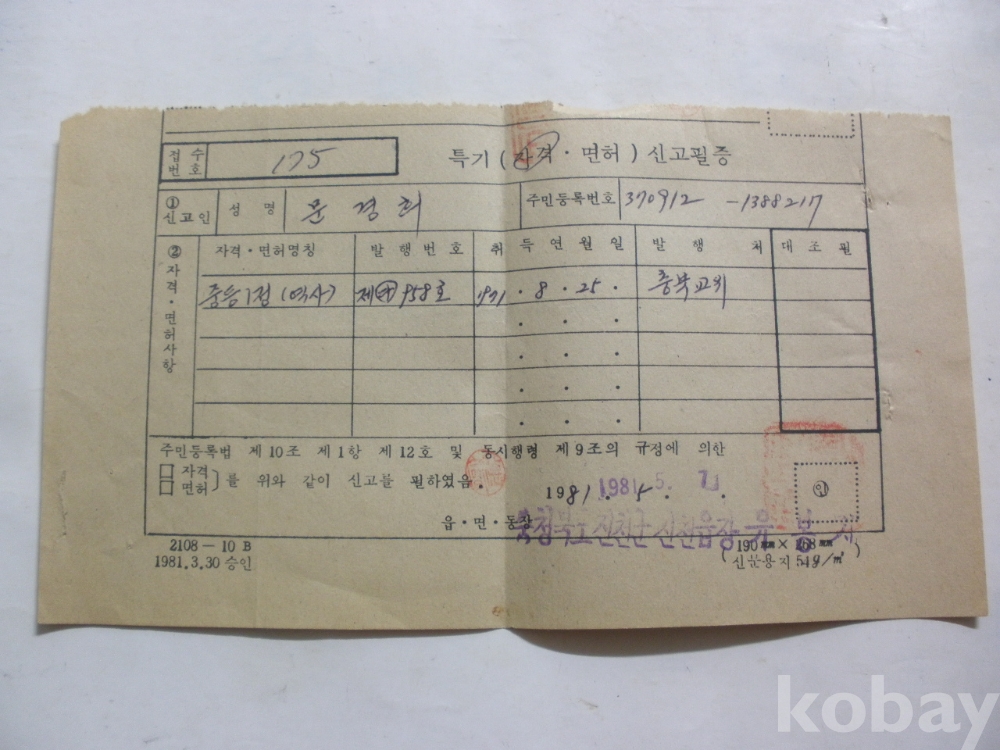 접수
번호
175
특기 (자격 · 면허) 신고필증
①
신고인
성 명
문경희
주민등록번호
370912 - 1388217
②
자격·면허사항
자격 · 면허명칭 발행번호 취득연월일 발행처 대조필
중등1정 (역사) 제㊥958호 1971 · 8 · 25 · 충북교위
주민등록법 제10조 제1항 제12호 및 동시행령 제9조의 규정에 의한
□ 자격
□ 면허
) 를 위와 같이 신고를 필하였음.
1981. 5. 7.
1981. 5. 7
인
읍 · 면 · 동장
충청북도 진천군 진천읍장
2108 - 10 B
1981.3.30 승인
(190㎜ × 268㎜
신문용지 54g/㎡)
kobay